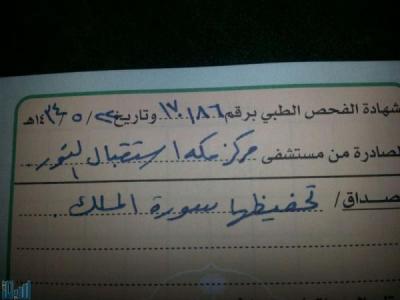 شهادة الفحص الطبي برقم ١٧٠١٨٦ وتاريخ ٢٢ / ٥ / ١٤٣٤هـ
الصادرة من مستشفى مركز مكة استقبال
صداق / تحفيظها سورة الملك .